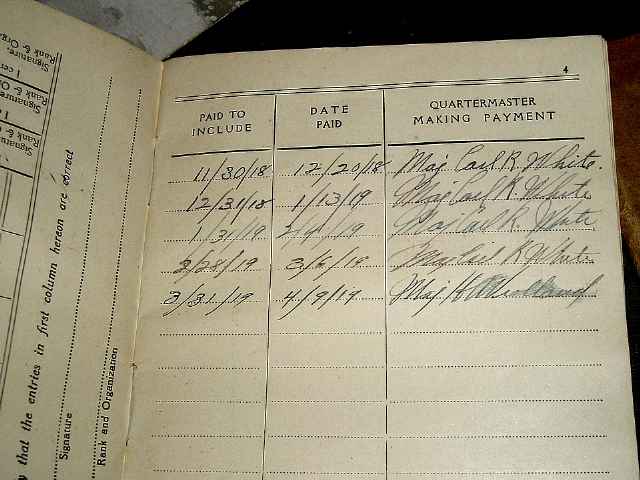 4
PAID TO INCLUDE DATE PAID QUARTERMASTER MAKING PAYMENT
11/30/18 12/20/18 Maj Carl R. White.
12/31/18 1/13/19 Maj Carl R. White
1/31/19 2/4/19 Maj Carl R. White
2/28/19 3/6/19 Maj Carl R White
3/31/19 4/9/19 Maj H
y that the entries in first column hereon are correct
Signature
Rank and Organization
Signature,
Rank & Orga
I cer
Signature,
Rank & O
I c
Signature
Rank &